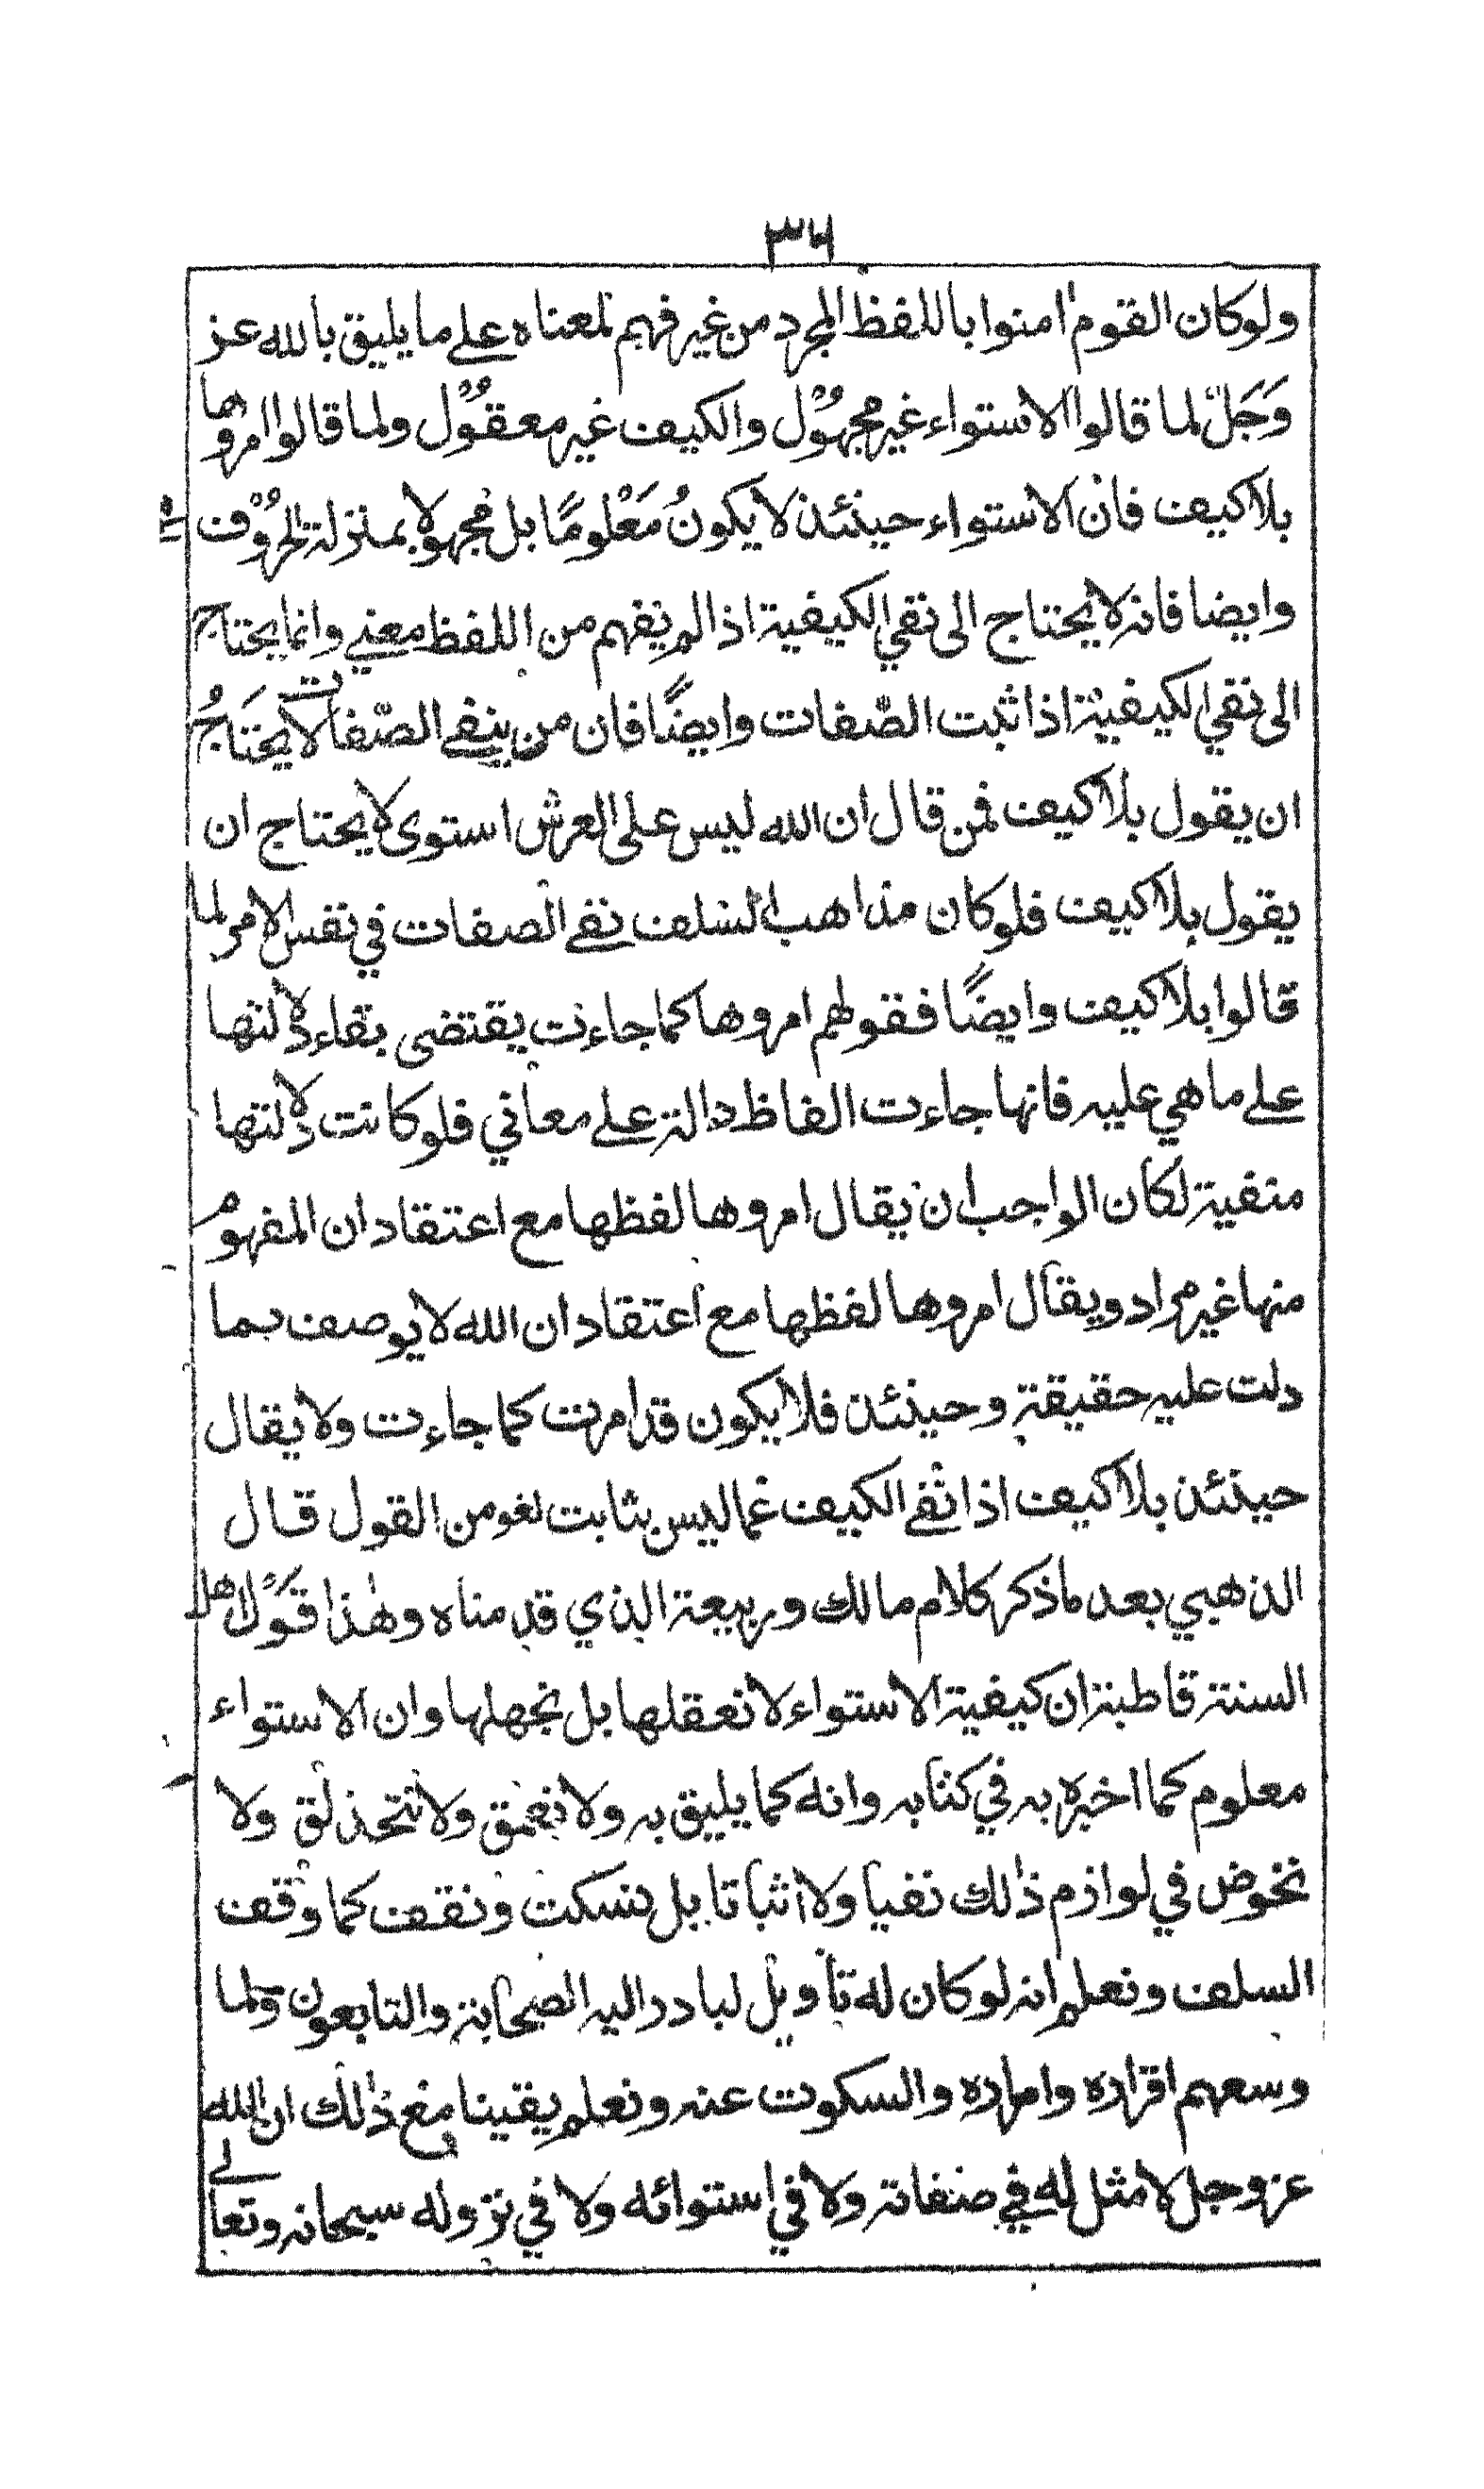 ٣٦
ولوكان القوم اٰمنوا باللفظ المجرد من غير فهم لمعناه علے ما يليق بالله عز
وَجَلّ لما قالوا الاستواء غير مجهُوْل والكيف غير معقُوْل ولما قالوا امروها
بلا كيف فان الاستواء حينئذ لا يكونُ مَعْلومًا بل مجهولا بمنزلة الحرُوْف
وايضا فانه لا يحتاج الى نفي الكيفية اذا لم يفهم من اللفظ معنے وانما يحتاج
الى نفي الكيفية اذا ثبت الصّفات وايضًا فان من ينفے الصّفات لا يحتَاجُ
ان يقول بلا كيف فمن قال ان الله ليس على العرش استوى لا يحتاج ان
يقول بلا كيف فلوكان مذاهب السلف نفے الصفات في نفس الامر لما
قالوا بلا كيف وايضًا فقولهم امروها كما جاءت يقتضى بقاء دلالتها
علے ما هي عليه فانها جاءت الفاظ دالة علے معاني فلوكانت دلالتها
منفية لكان الواجب ان يقال امروها لفظها مع اعتقاد ان المفهوم
منها غير مراد ويقال امروها لفظها مع اعتقاد ان الله لا يوصف بما
دلت عليه حقيقة وحينئذ فلا يكون قد امرت كما جاءت ولا يقال
حينئذ بلا كيف اذا نفے الكيف عما ليس بثابت لغو من القول قال
الذهبي بعد ما ذكر كلام مالك وربيعة الذي قدمناه وهٰذا قَوْل اهل
السنة قاطبة ان كيفية الاستواء لا نعقلها بل نجهلها وان الاستواء
معلوم كما اخبر به في كتابه وانه كما يليق به ولا نعمق ولا نتحذلق ولا
نخوض في لوازم ذٰلك نفيا ولا اثباتا بل نسكت ونقف كما وقف
السلف ونعلم انه لوكان له تاويل لبادر اليه الصحابة والتابعون ولما
وسعهم اقراره وامراره والسكوت عنه ونعلم يقينا مع ذٰلك ان الله
عز وجل لا مثل له فے صفاته ولا في استوائه ولا في نزوله سبحانه وتعالے